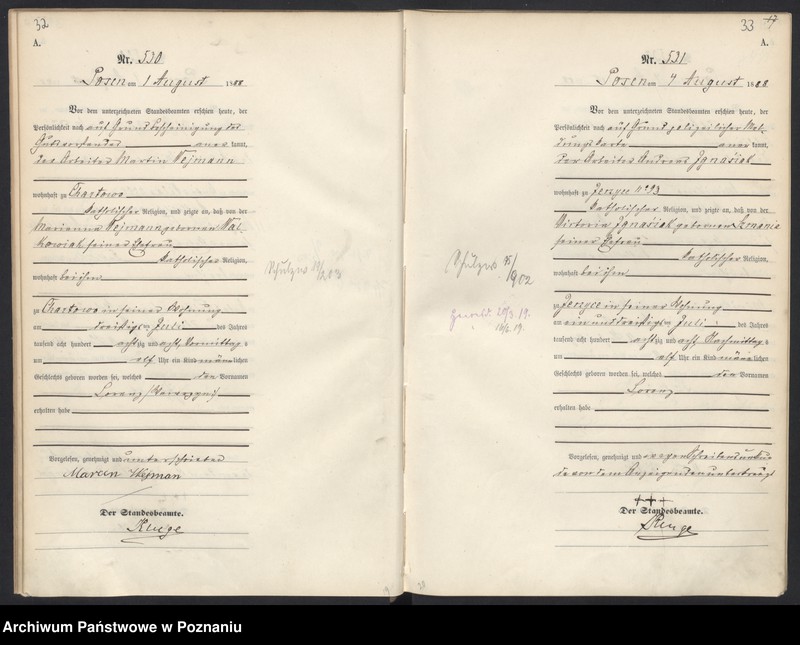 32
A.
Nr. 530
Posen am 1 August 1888
Vor dem unterzeichneten Standesbeamten erschien heute, der
Persönlichkeit nach auf Grund Bescheinigung des
Gutsvorstandes aner kannt,
der Arbeiter Martin Wejmann
wohnhaft zu Chartowo
katholischer Religion, und zeigte an, daß von der
Marianna Wejmann gebornen Wal-
kowiak seiner Ehefrau
katholischer Religion,
wohnhaft bei ihm
zu Chartowo in seiner Wohnung
am dreißigsten Juli des Jahres
tausend acht hundert achtzig und acht Vormittags
um elf Uhr ein Kind männlichen
Geschlechts geboren worden sei, welches den Vornamen
Lorenz
erhalten habe
Vorgelesen, genehmigt und unterschrieben
Marcin Wejman
Der Standesbeamte.
Runge
33
A.
Nr. 531
Posen am 7 August 1888
Vor dem unterzeichneten Standesbeamten erschien heute, der
Persönlichkeit nach auf Grund polizeilicher Mel-
dungskarte aner kannt,
der Arbeiter Andreas Ignasiak
wohnhaft zu Jerzyce No 93
katholischer Religion, und zeigte an, daß von der
Victoria Ignasiak gebornen
seiner Ehefrau
katholischer Religion,
wohnhaft bei ihm
zu Jerzyce in seiner Wohnung
am einunddreißigsten Juli des Jahres
tausend acht hundert achtzig und acht Nachmittags
um elf Uhr ein Kind männlichen
Geschlechts geboren worden sei, welches den Vornamen
Lorenz
erhalten habe
Vorgelesen, genehmigt und wegen Schreibensunkun-
de von dem Anzeigenden unterkreuzt
+++
Der Standesbeamte.
Runge
Archiwum Państwowe w Poznaniu